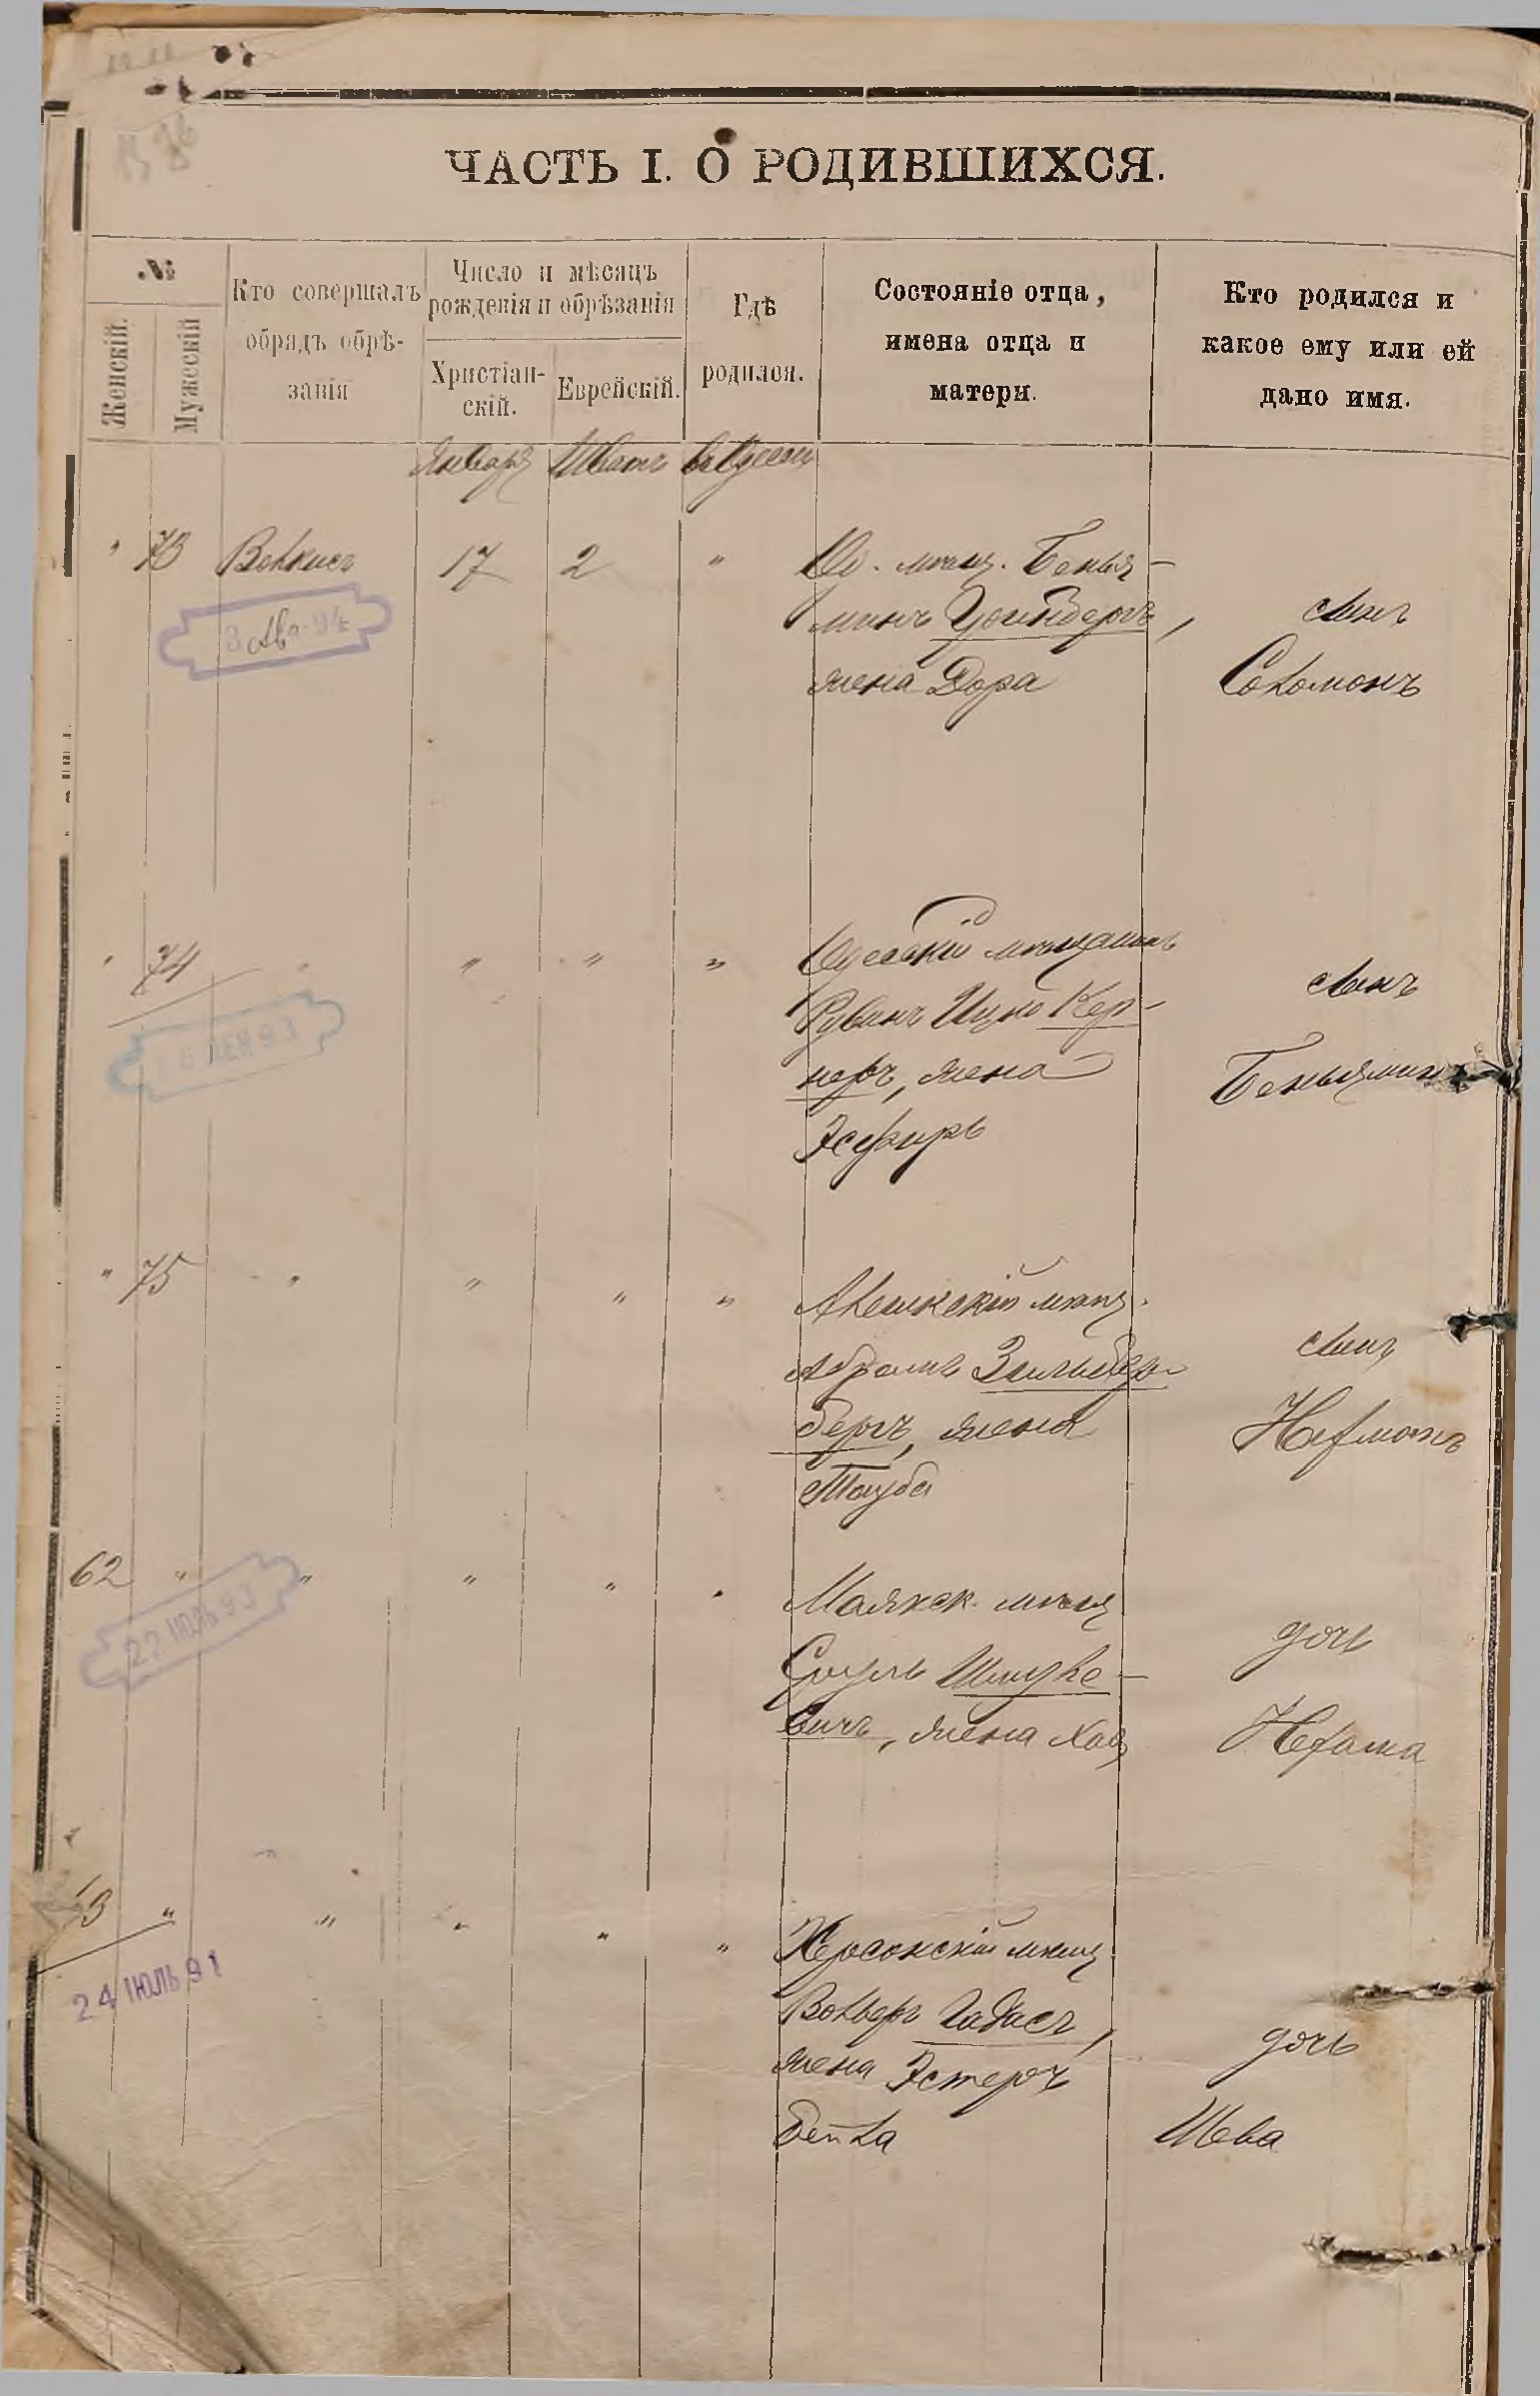 ЧАСТЬ I. О РОДИВШИХСЯ.
№
Женскій.
Мужескій
Кто совершалъ
обрядъ обрѣ-
занія
Число и мѣсяцъ
рожденія и обрѣзанія
Христіан-
скій.
Еврейскій.
Гдѣ
родился.
Состояніе отца,
имена отца и
матери.
Кто родился и
какое ему или ей
дано имя.
Январь Шватъ въ Одессѣ
" 73 17 2 "
Од. мѣщ. Бенья-
минъ
жена Дора
сынъ
Соломонъ
" 74 " " " "
Одесскій мѣщанинъ
Рувинъ Ицко Кер-
неръ, жена
Эсфирь
сынъ
Беньяминъ
" 75 " " " "
Алешкскій мѣщ.
Абрамъ Зильбер-
бергъ, жена
Тауба
сынъ
62 " " " " "
22 ІЮЛЬ 93
Маякск. мѣщ
Сруль Шмуле-
вичъ, жена Хая
дочь
Нехама
63 " " " " "
24 ІЮЛЬ 91
Херсонскій мѣщ.
Вольфъ Гадасъ,
жена Эстеръ
Бейла
дочь
Шева